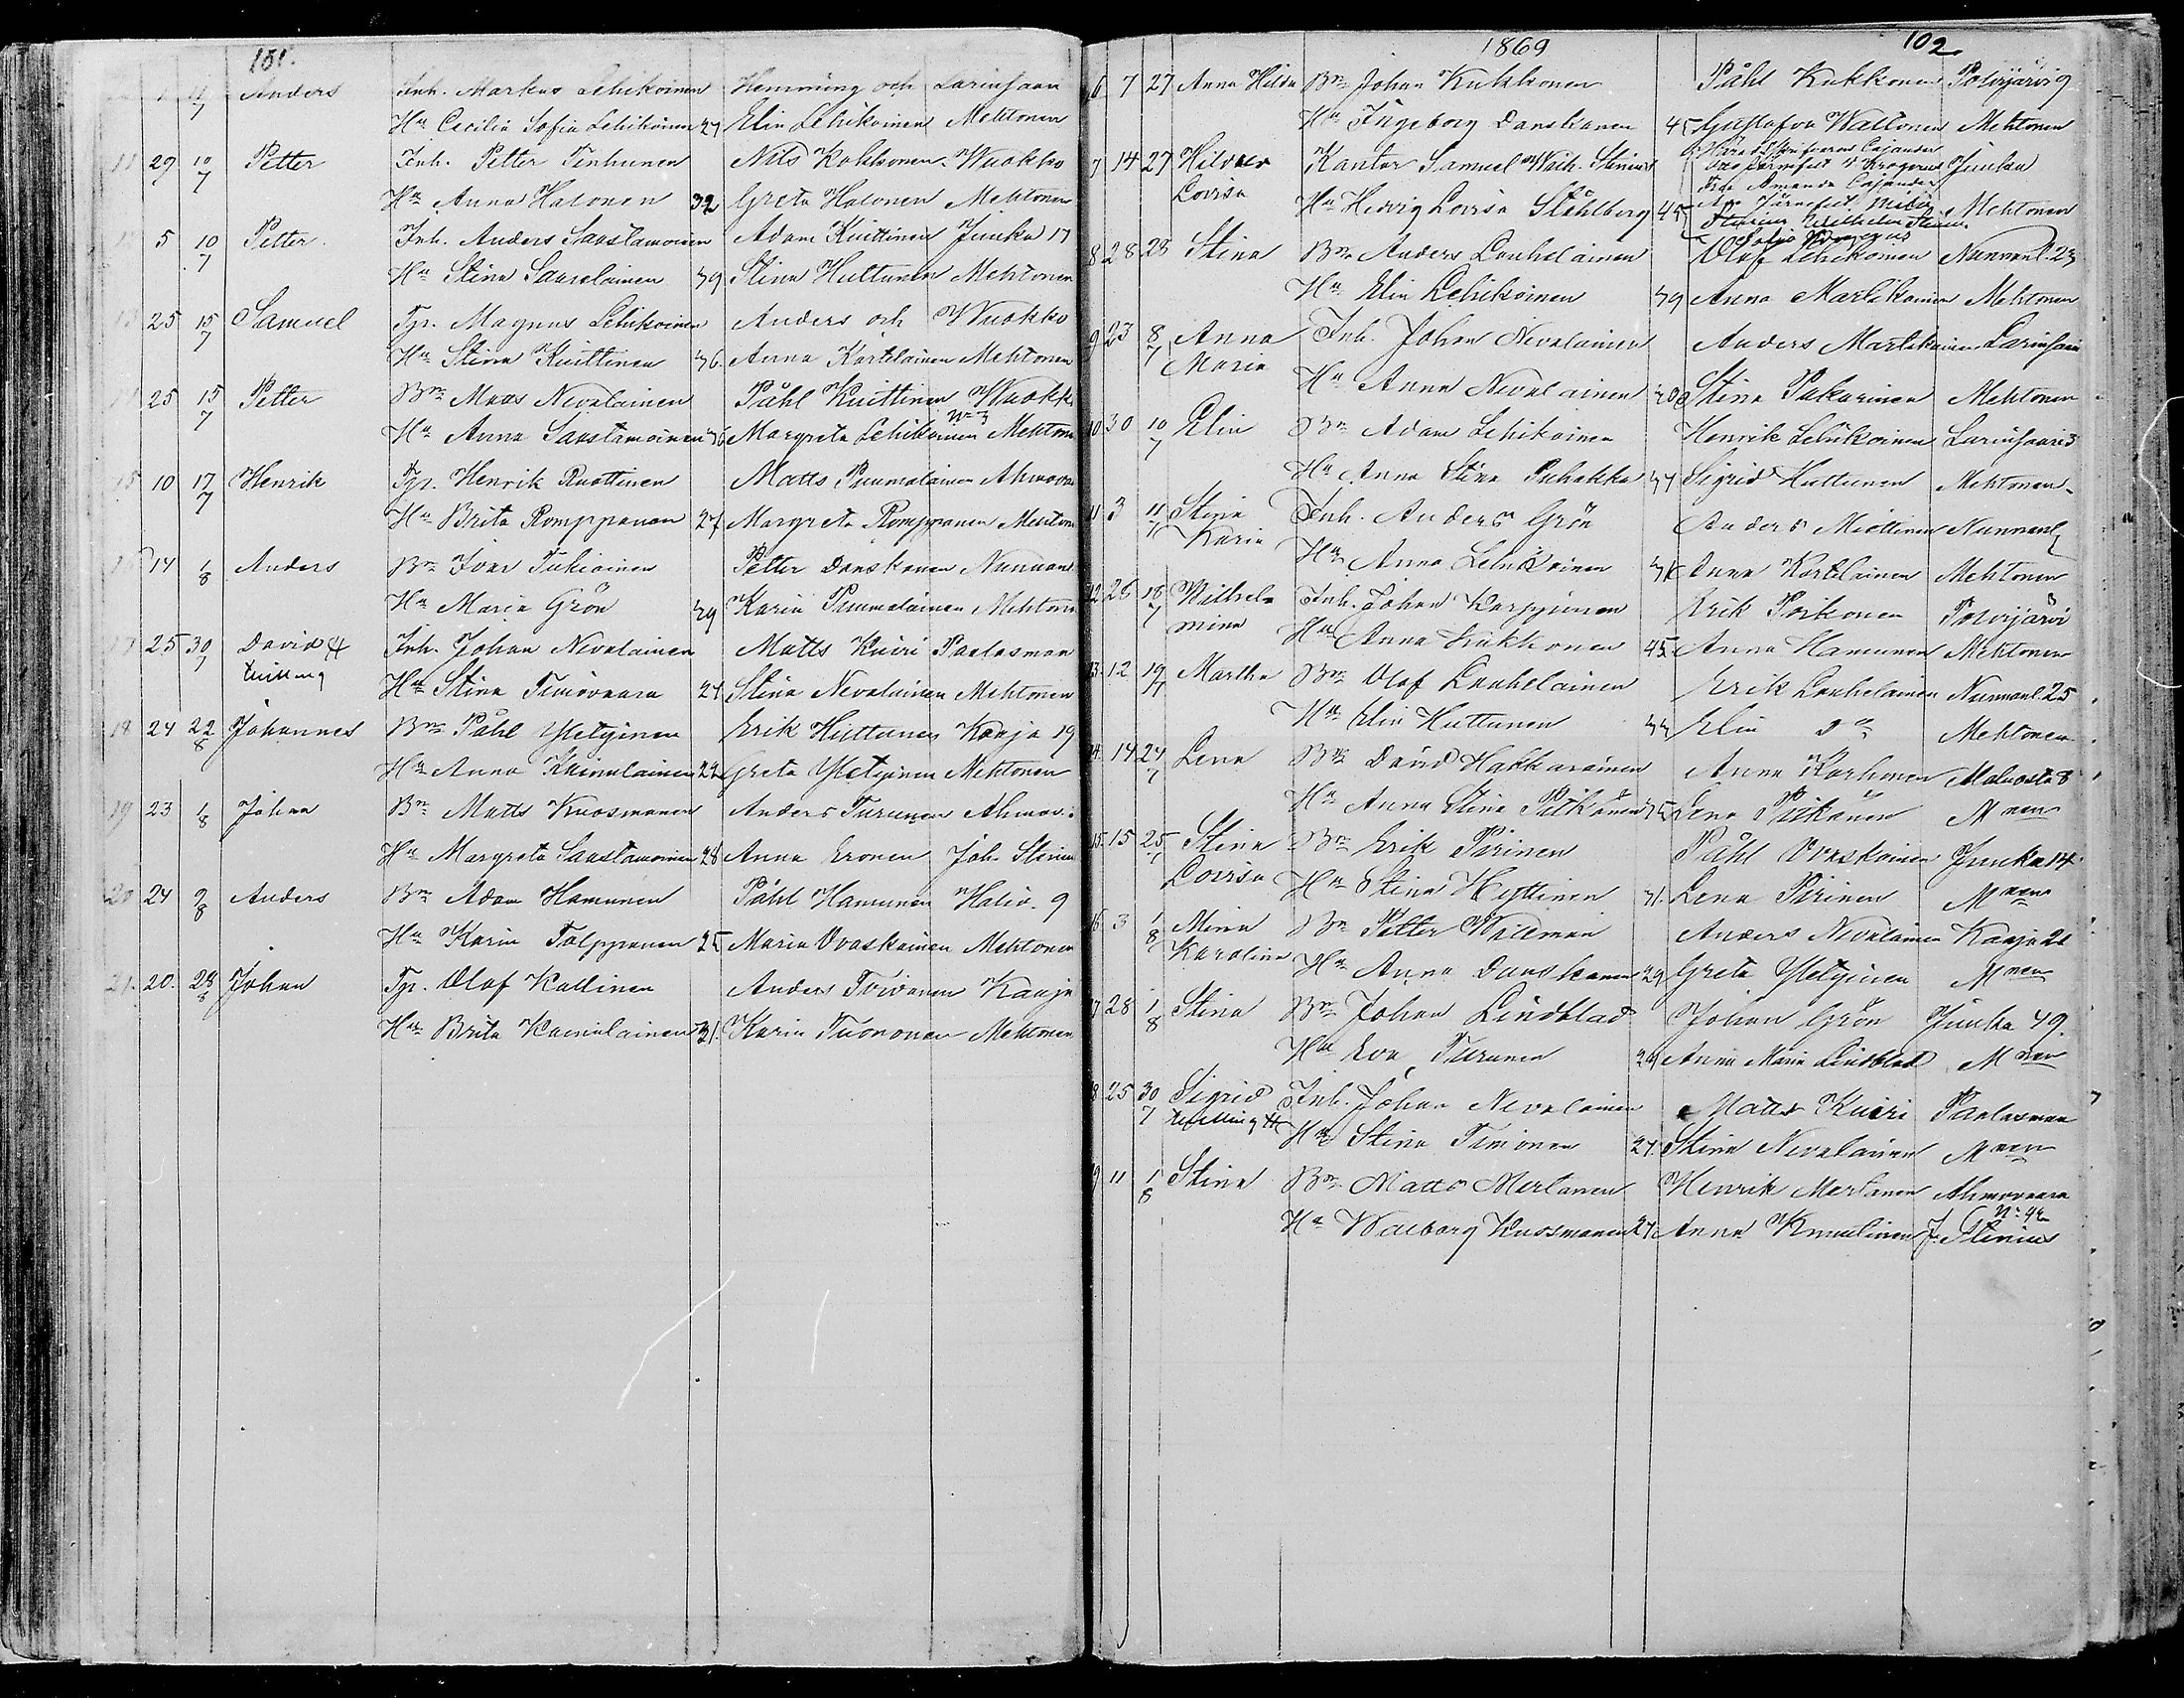 101.
Anders Inh. Markus Lehikoinen Hemming och Larinsaari
7 Hu Cecilia Sofia Lehikoinen 27 Elin Lehikoinen Mehtonen
11 29 10/7 Petter Inh. Petter Tenhunen Nils Kokkonen Wuokko
Hu Anna Halonen 32 Greta Halonen Mehtonen
5 10/7 Petter Inh. Anders Saastamoinen Adam Kuittinen Juuka 17
Hu Stina Saarelainen 39 Stina Huttunen Mehtonen
25 15/7 Samuel Tjr. Magnus Lehikoinen Anders och Wuokko
Hu Stina Kuittinen 36. Anna Kortelainen Mehtonen
25 15/7 Petter Bn Matts Nevalainen Påhl Kuittinen Wuokk
No 3
Hu Anna Saastamoinen 36 Margreta Lehikoinen Mehtone
15 10 17/7 Henrik Tjr. Henrik Ruottinen Matts Pummalainen Ahmova
Hu Brita Romppanen 27 Margreta Romppanen Mehton
14 1/8 Anders Bn Ivar Tukiainen Petter Danskanen Nunnanl
Hu Maria Grön 39 Karin Pummalainen Mehtone
25 30/7 David Inh. Johan Nevalainen Matts Kuiri Paalasmaa
tvilling Hu Stina Timovaara 27. Stina Nevalainen Mehtonen
18 24 22/8 Johannes Bn Påhl Yletyinen Erik Huttunen Kaaja 19
Hu Anna Kainulainen 22 Greta Yletyinen Mehtonen
19 23 1/8 Johan Bn Matts Kuosmanen Anders Turunen Ahmov.
Hu Margreta Saastamoinen 28 Anna Eronen Joh. Stenius
20 24 9/8 Anders Bn Adam Hamunen Påhl Hamunen Haliv. 9
Hu Karin Tolppanen 25 Maria Ovaskainen Mehtonen
21. 20. 28/8 Johan Tjr. Olof Kallinen Anders Toivanen Kaaja
Hu Brita Kainulainen 31. Karin Tuononen Mehtonen
1869 102
6 7 27 Anna Hilda Bn Johan Kukkonen Påhl Kukkonen Polvijärvi 9
Hu Ingeborg Danskanen 45 Gustafva Wattonen Mehtonen
Cajander
7 14 27 Hilda Kantor Samuel Wilh. Stenius Juuka
Fru Amanda Cajander
Lovisa Hu Hedvig Lovisa Ståhlberg 45 Mehtonen
Wilhelm
8 28 23 Stina Bn Anders Louhelainen Olof Lehikoinen Nunnanl. 23
Hu Elin Lehikoinen 39 Anna Martikainen Mehtonen
9 23 8/7 Anna Inh. Johan Nevalainen Anders Martikainen Larinsaari
Maria Hu Anna Nevalainen Stina Pakarinen Mehtonen
10 30 10/7 Elin Bn Adam Lehikoinen Henrik Lehikoinen Larinsaari 3
Hu Anna Stina Puhakka 37 Sigrid Huttunen Mehtonen
11 3 11/7 Stina Inh. Anders Grön Anders Miettinen Nunnanl
Karin Hu Anna Lehikoinen Anna Kortelainen Mehtonen
12 26 18/7 Wilhel- Inh. Johan Karppinen Erik Poikonen Polvijärvi 3
mina Hu Anna Kukkonen 45 Anna Hamunen Mehtonen
13. 12 19/7 Martha Bn Olof Louhelainen Erik Louhelainen Nunnanl. 25
Hu Elin Huttunen Elin Do Mehtonen
14 24/7 Lena Bn David Hakkarainen Anna Korhonen
Hu Anna Stina Pitkänen 35 Lena Pitkänen Mnen
15. 15 25/7 Stina Bn Erik Pirinen Påhl Ovaskainen Juuka 14
Lovisa Hu Stina Hyttinen 31. Lena Pirinen Mnen
16 3 1/8 Mina Bn Petter Wallman Anders Nevalainen Kaaja 21
Karolina Hu Anna Danskanen 29 Greta Yletyinen Mnen
17 28 1/8 Stina Bn Johan Lindblad Johan Grön Juuka 49.
Hu Eva Turunen Anna Maria Lindblad Mnen
18 25 30/7 Sigrid Inh. Johan Nevalainen Matts Kuiri Paalasmaa
tvilling Hu Stina Timonen 27. Stina Nevalainen Mnen
19 11 1/8 Stina Bn Matts Mertanen Henrik Mertanen Ahmovaara
No 42
Hu Walborg Kuosmanen 27 Anna J. Stenius